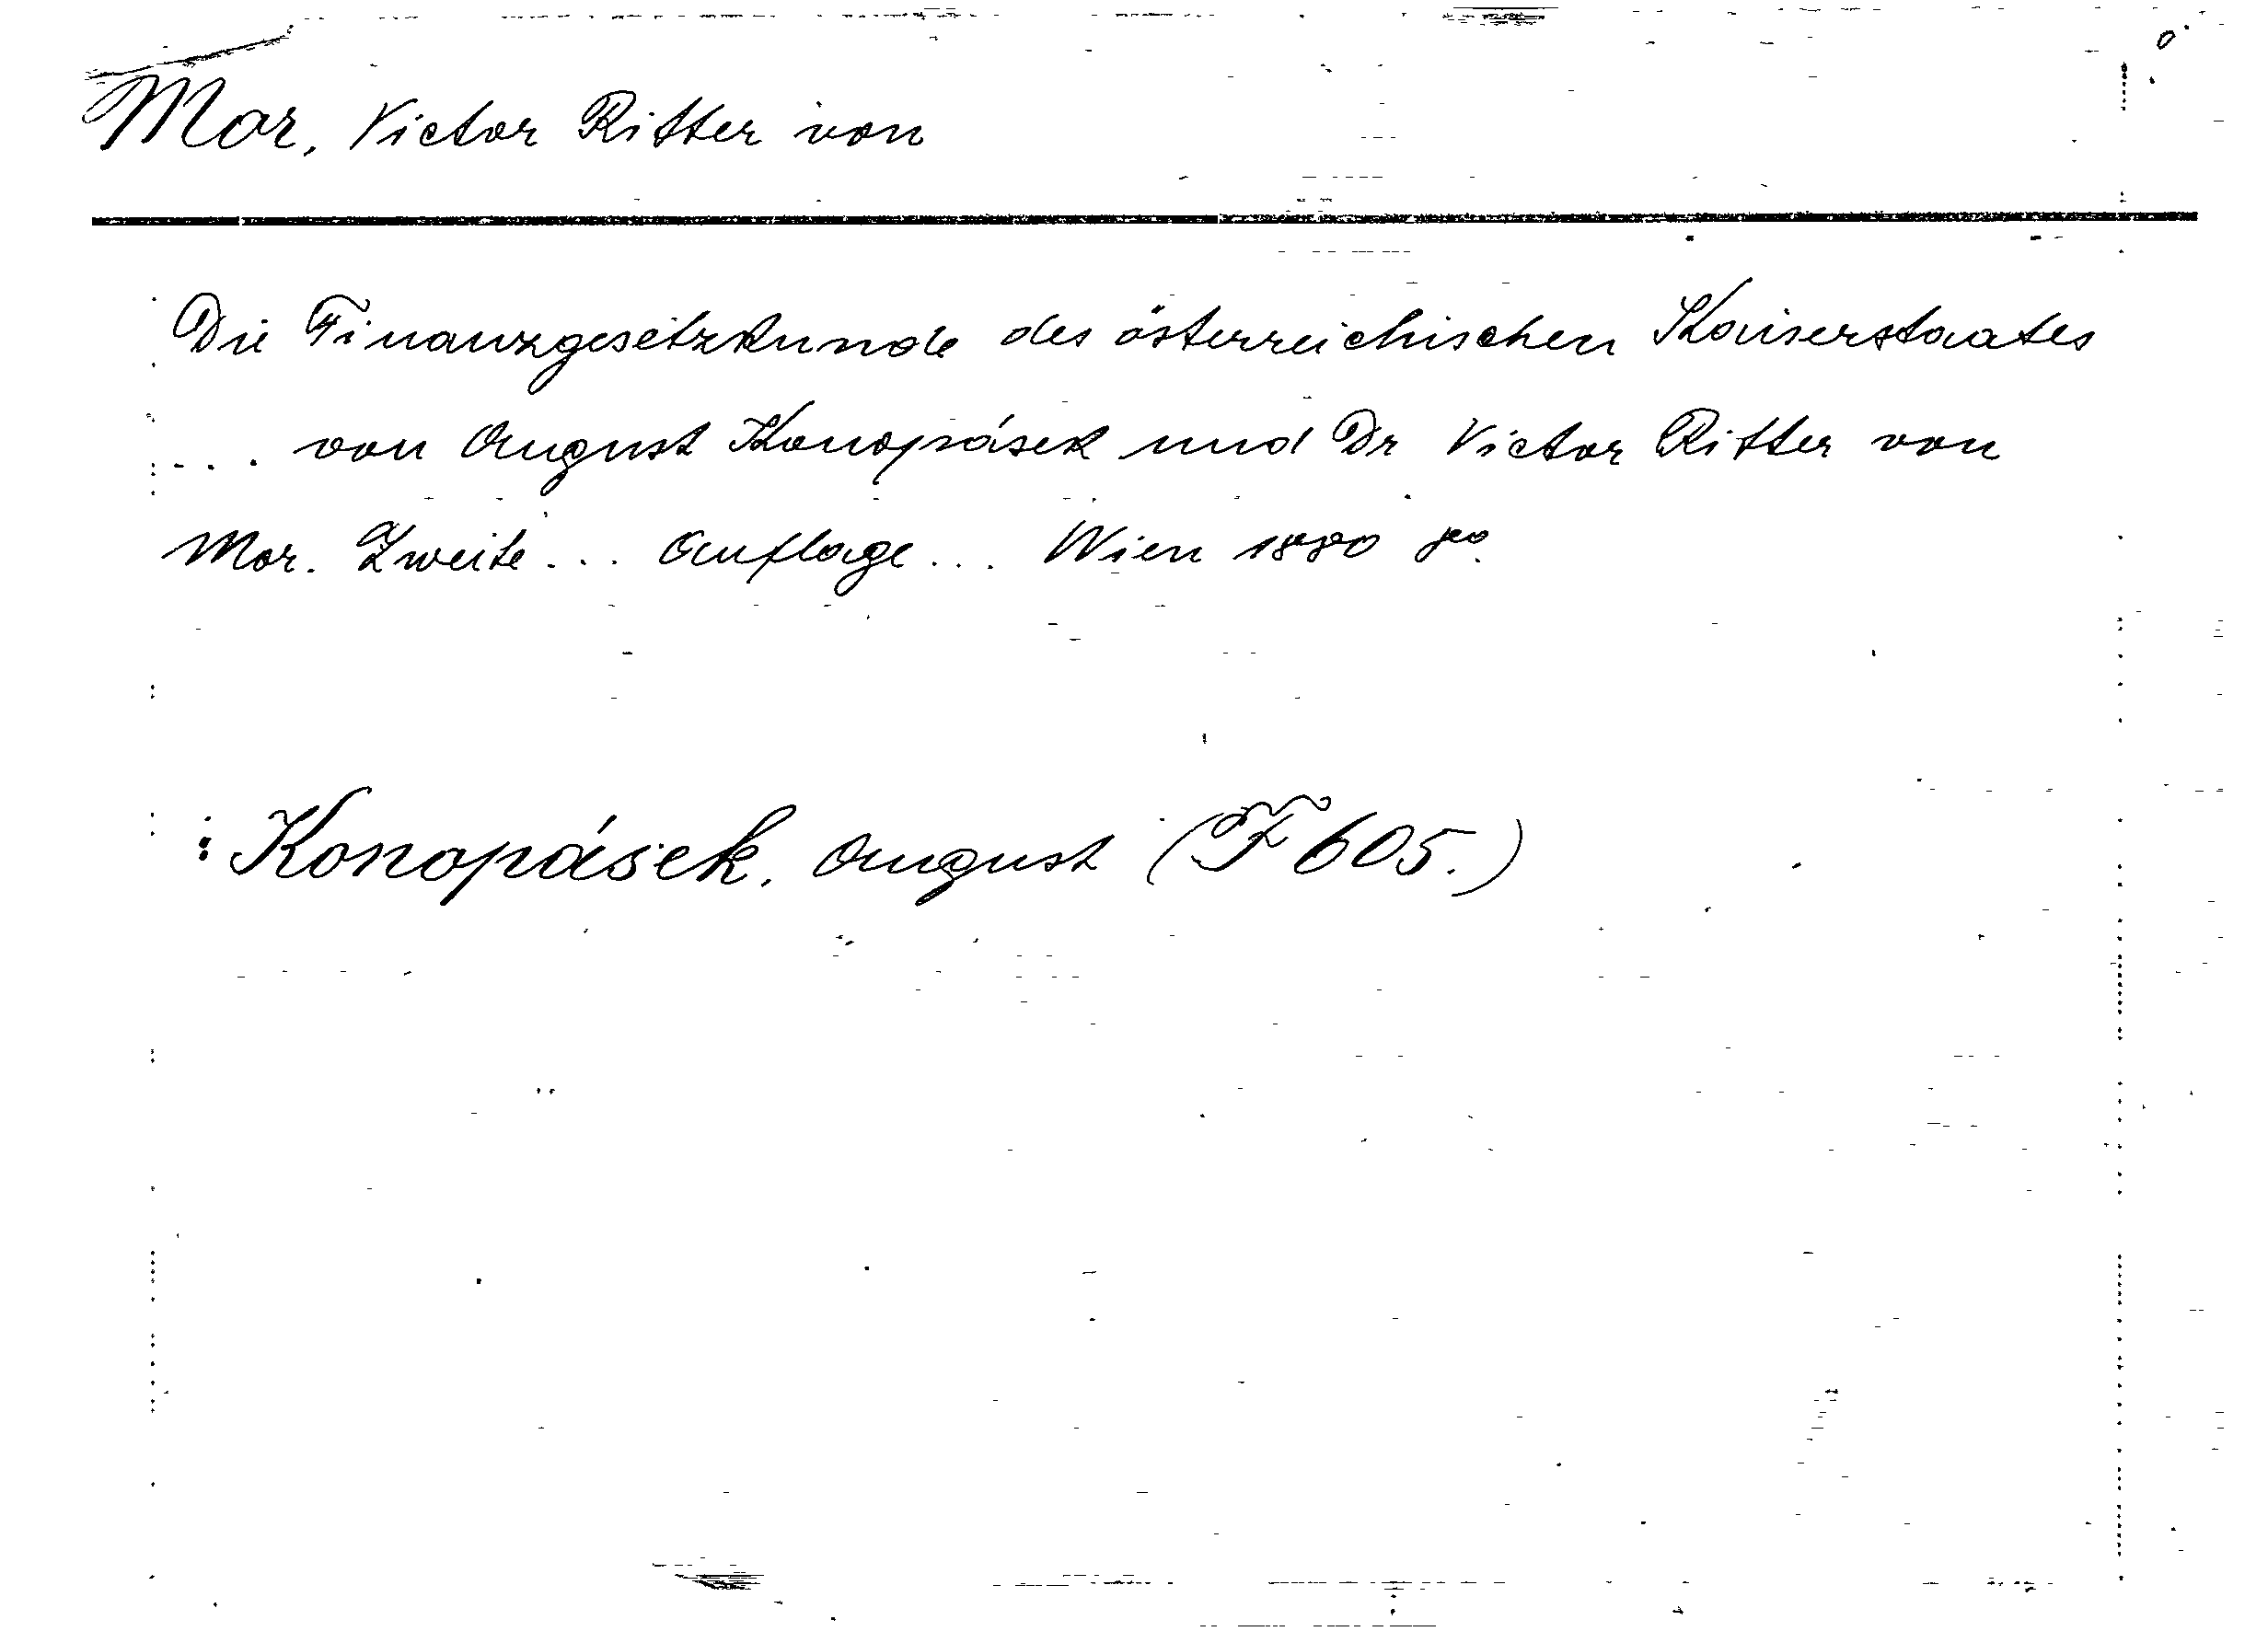 Mor, Victor Ritter von
Die Finanzgesetzkunde des österreichischen Kaiserstaates
... von August Konopásek und Dr Victor Ritter von
Mor. Zweite ... Auflage ... Wien 1880 8º.
: Konopásek, August (F 605.)